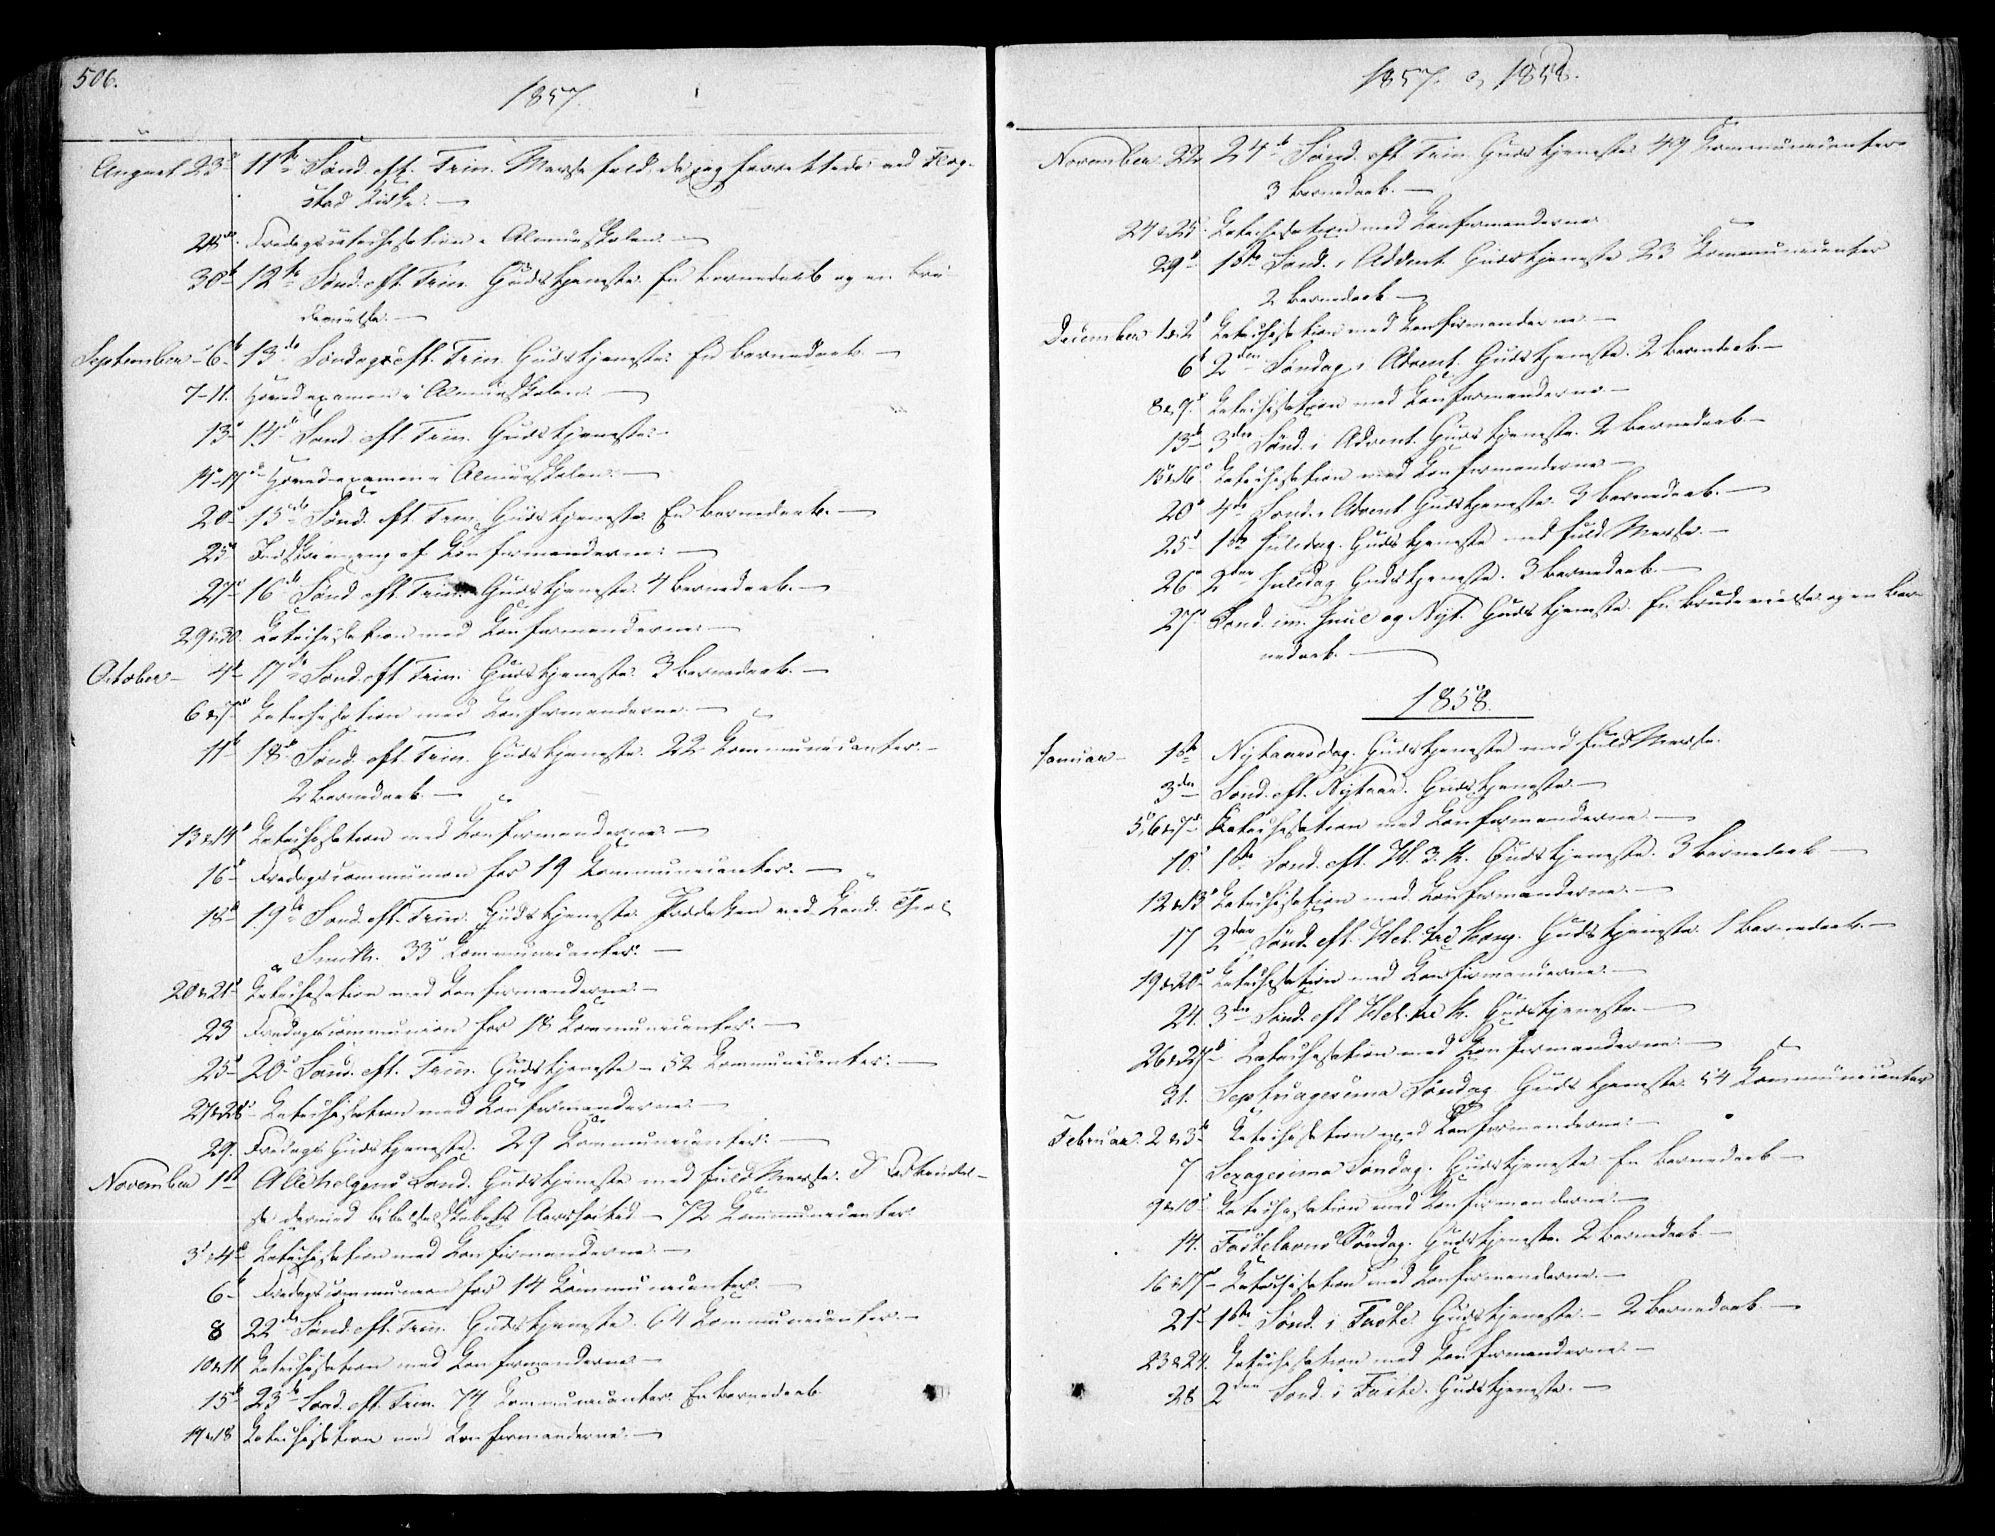 506.
1857.
August 23de 11te Sønd. eft. Trin. Messefald, da jeg forrettede ved Flag-
stad Kirke. —
28de. Fredagscatechisation i Almueskolen. —
30te 12te Sønd. eft. Trin. Gudstjeneste. En Barnedaab og en Bru-
devielse. —
September 6te 13de Søndag eft. Trin. Gudstjeneste. En Barnedaab. —
7–11. Hovedexamen i Almueskolen. —
13de 14de Sønd. eft. Trin. Gudstjeneste. —
14–17de Hovedexamen i Almueskolen. —
20de 15de Sønd. eft. Trin. Gudstjeneste. En Barnedaab. —
25de Indskrivning af Konfirmanderne. —
27de 16de Sønd eft. Trin. Gudstjeneste. 4 Barnedaab. —
29 & 30. Katechisation med Konfirmanderne. —
October 4de 17de Sønd. eft Trin. Gudstjeneste. 3 Barnedaab. —
6 & 7de Katechisation med Konfirmanderne. —
11te 18de Sønd. eft. Trin. Gudstjeneste. 22 Kommunicanter. —
2 Barnedaab. —
13 & 14de Katechisation med Konfirmanderne. —
16de Fredagscommunion for 19 Kommunicanter. —
18de 19de Sønd. eft. Trin. Gudstjeneste. Prædiken ved Kand. Theol.
Smith. 33 Kommunicanter. —
20 & 21de Katechisation med Konfirmanderne. —
23 Fredagscommunion for 18 Kommunicanter. —
25de 20de Sønd. eft. Trin. Gudstjeneste — 52 Kommunicanter. —
27 & 28de Katechisation med Konfirmanderne. —
29. Fredags Gudstjeneste. 29 Kommunicanter. —
November 1ste Allehelgens Sønd. Gudstjeneste med fuld Messe.
Bibelselskabets Aarshøitid — 72 Kommunicanter.
3 & 4de Katechisation med Konfirmanderne. —
6te Fredagscommunion for 14 Kommunicanter. —
8 22de Sønd. eft. Trin. Gudstjeneste. 64 Kommunicanter. —
10 & 11 Katechisation med Konfirmanderne —
15de 23de Sønd. eft. Trin. 74 Kommunicanter. En Barnedaab
17 & 18 Katechisation med Konfirmanderne. —
1857. og 1858.
November 22. 24de Sønd. eft Trin. Gudstjeneste 49 Kommunicanter
3 Barnedaab. —
24 & 25. Katechisation med Konfirmanderne.
29de 1ste Sønd. i Advent Gudstjeneste 23 Kommunicanter
2 Barnedaab —
December 1 & 2de Katechisation med Konfirmanderne. —
6te 2den Søndag i Advent. Gudstjeneste. 2 Barnedaab. —
8 & 9de Katechisation med Konfirmanderne —
13de 3die Sønd. i Advent. Gudstjeneste. 2 Barnedaab. —
15 & 16de Katechisation med Konfirmanderne —
20de 4de Sønd. i Advent Gudstjeneste. 3 Barnedaab. —
25de 1ste Juledag. Gudstjeneste med fuld Messe. —
26de 2den Juledag Gudstjeneste. 3 Barnedaab. —
27de Sønd. im. Juul og Nyt. Gudstjeneste. En Brudevielse og en Bar-
nedaab. —
1858.
Januar — 1ste Nytaarsdag. Gudstjeneste med fuld Messe.
3die Sønd. eft. Nytaar. Gudstjeneste. —
5, 6 & 7de Katechisation med Konfirmanderne —
10de 1ste Sønd. eft. H. 3. K. Gudstjeneste. 3 Barnedaab —
12 & 13de Katechisation med Konfirmanderne. —
17 2den Sønd. eft. Hel. tre Kong. Gudstjeneste 1 Barnedaab. —
19 & 20de Katechisation med Konfirmanderne. —
24. 3die Sønd. eft Hel. tre K. Gudstjeneste. —
26 & 27de Katechisation med Konfirmanderne. —
31. Septuagesima Søndag Gudstjeneste 54 Kommunicanter
Februar. 2 & 3de Katechisation med Konfirmanderne. —
7 Sexagesima Søndag. Gudstjeneste En Barnedaab —
9 & 10de Katechisation med Konfirmanderne. —
14. Fastelavns Søndag. Gudstjeneste. 2 Barnedaab —
16 & 17de Katechisation med Konfirmanderne. —
21de 1ste Sønd. i Faste. Gudstjeneste. — 2 Barnedaab. —
23 & 24. Katechisation med Konfirmanderne. —
28 2den Sønd. i Faste. Gudstjeneste. —